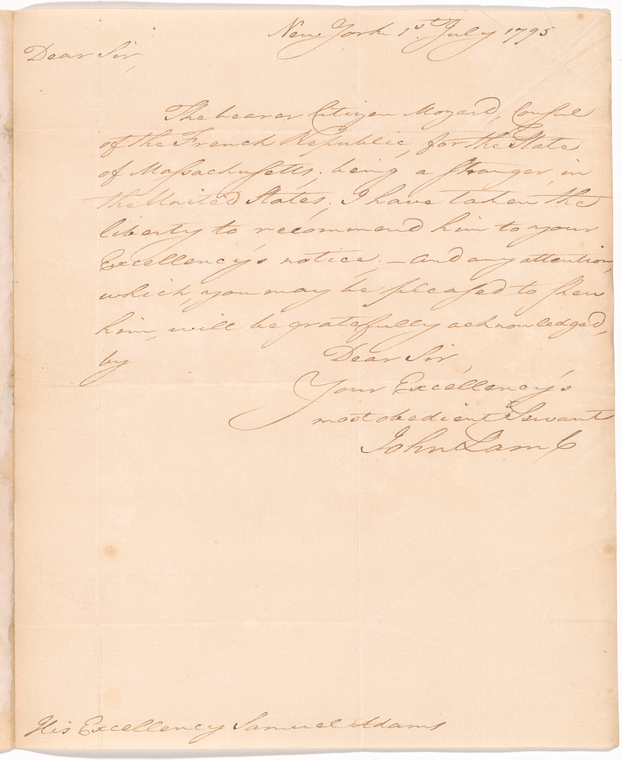 New York 1st July 1795
Dear Sir,
The bearer Citizen Mozard, Consul
of the French Republic, for the State
of Massachusetts, being a stranger, in
the United States, I have taken the
liberty to recommend him to your
Excellency's notice. – and any attention,
which, you may be pleased to shew
him, will be gratefully acknowledged,
by
Dear Sir
Your Excellency's
most obedient Servant
John Lamb
His Excellency Samuel Adams